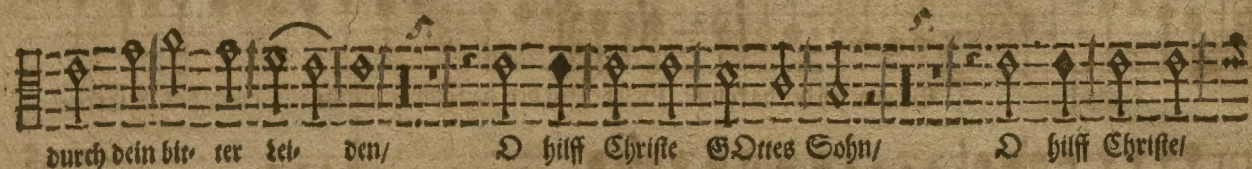 durch dein bit⸗ ter Lei⸗ den/ O hilff Christe GOttes Sohn/ O hilff Christe/